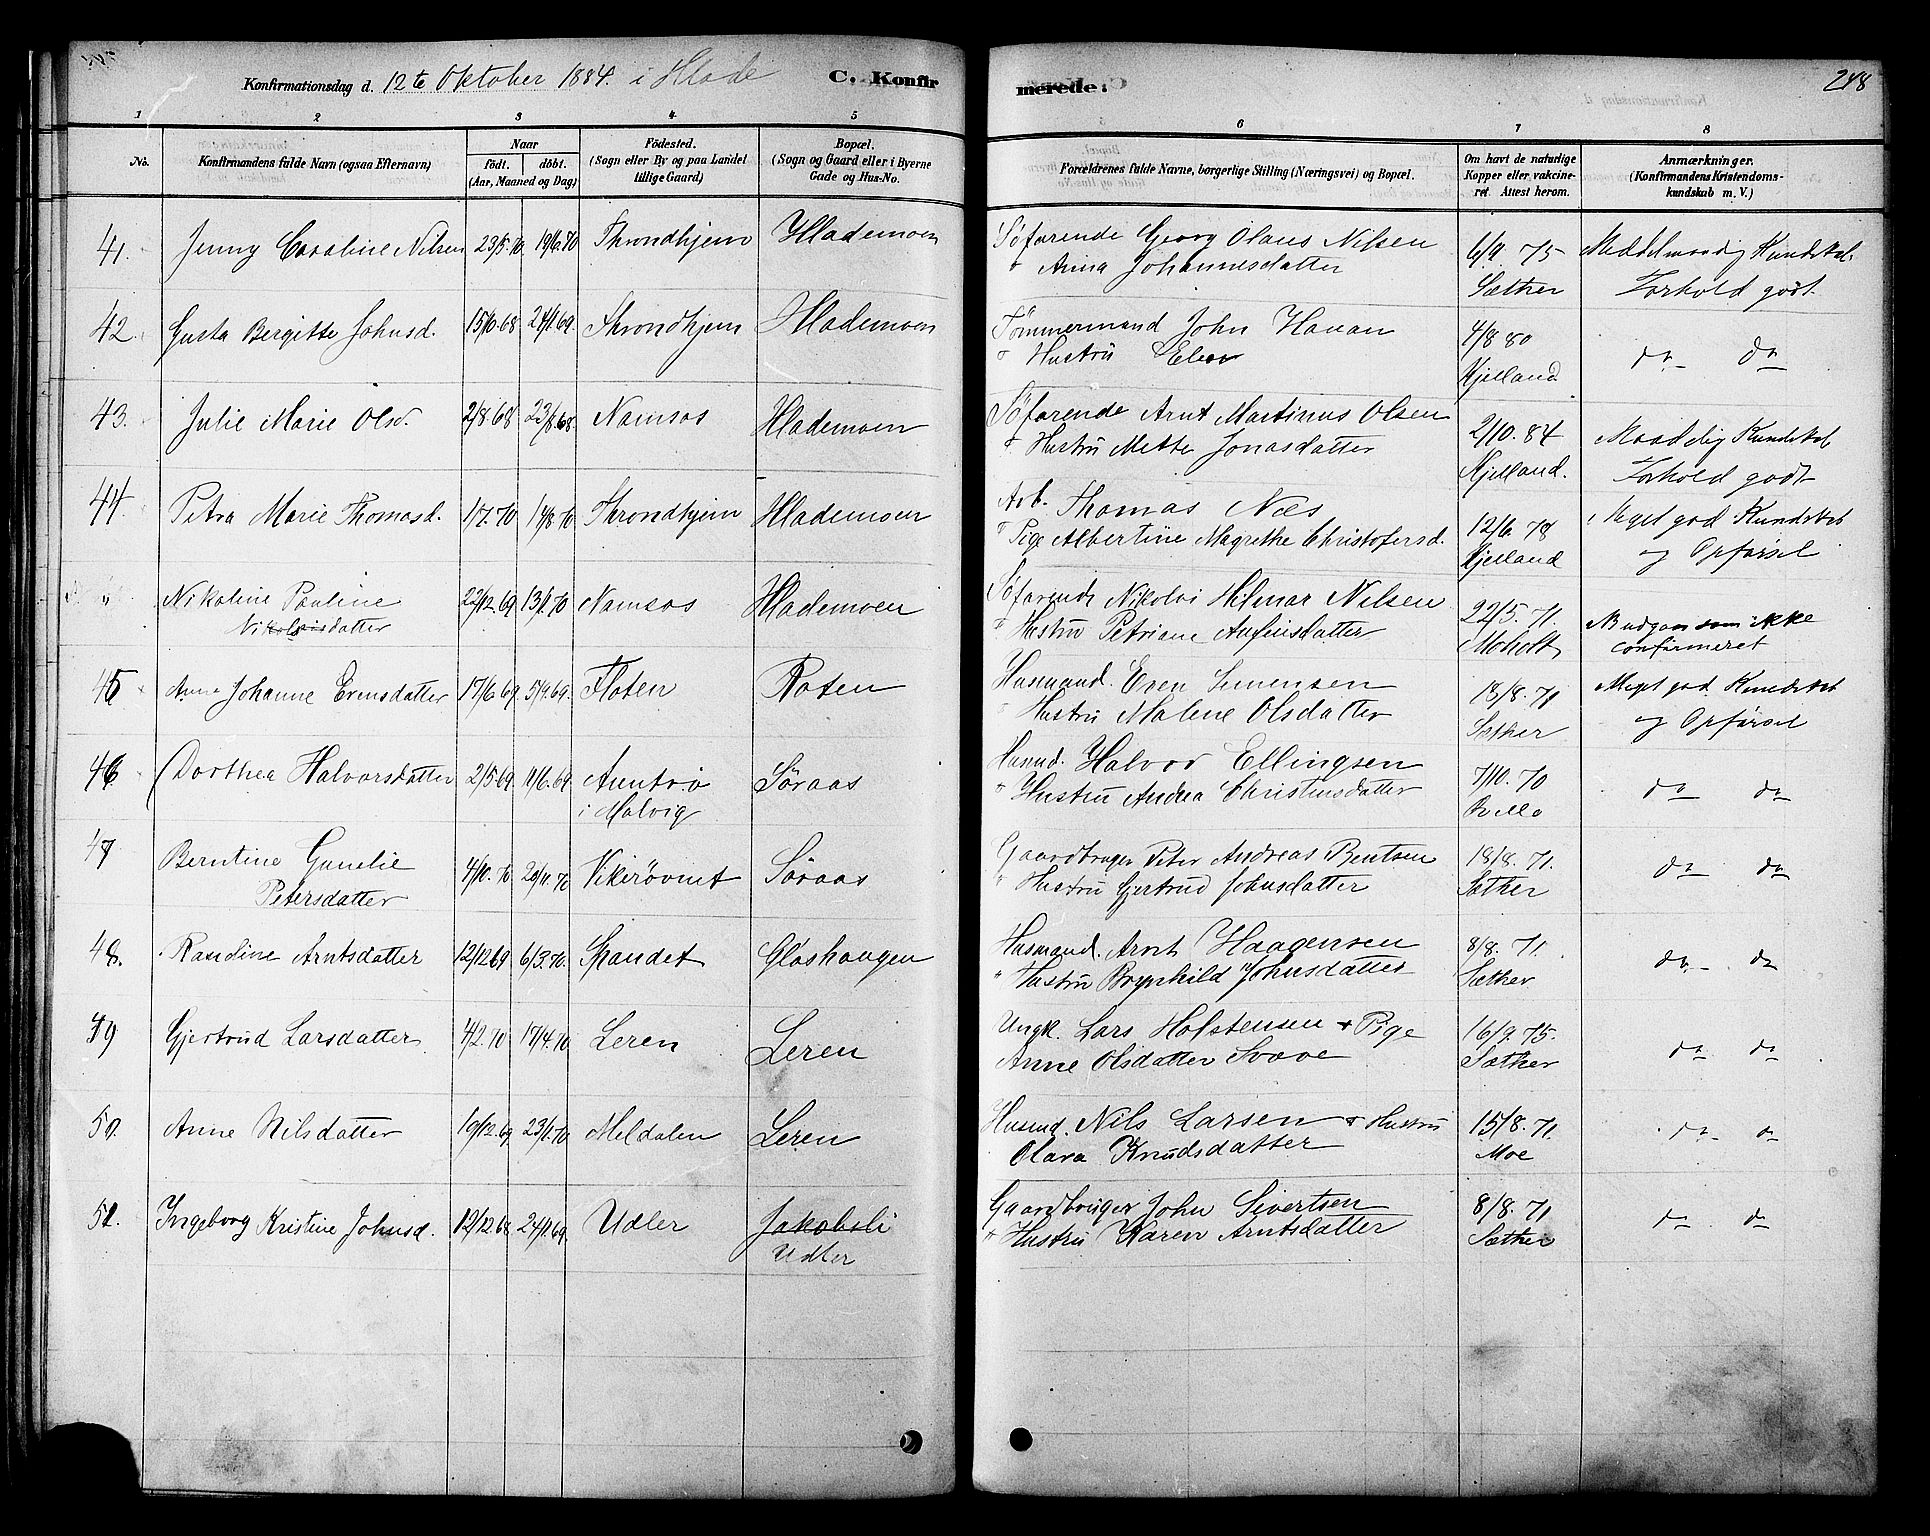 Konfirmationsdag d. 12te Oktober 1884. i Hlade C. Konfir
merede. 248
1 2 3 4 5 6 7 8
No. Konfirmandens fulde Navn (ogsaa Efternavn) Naar Födested. Bopæl.
født. döbt. (Sogn eller By og paa Landet (Sogn og Gaard eller i Byerne
(Aar, Maaned og Dag) tillige Gaard) Gade og Hus-No.
Forældrenes fulde Navne, borgerlige Stilling (Næringsvei) og Bopæl.
Om havt de naturlige
Kopper eller vakcine-
ret. Attest herom.
Anmærkninger.
(Konfirmandens Kristendoms-
kundskab m. V.)
41. Jenny Caroline Nilsen 23/5.70. 19/6.70 Throndhjem Hlademoen Søfarende Georg Olaus Nilsen 6/9 75 Middelmaadig Kundskab.
Anna Johannesdatter Sæther Forhold godt.
42. Gusta Bergitte Johnsd. 15/10.68 24/1.69. Throndhjem Hlademoen Tømmermand John Hanan 4/8 80 do do
Hustru Elen Kjelland
43. Julie Marie Olsd. 2/8 68 23/8.68. Namsos Hlademoen Søfarende Arnt Martinus Olsen 2/10. 84 Maadelig Kundskab
Hustru Mette Jonasdatter Kjelland. Forhold godt
44. Petra Marie Thomasd. 1/7.70 14/8 70 Throndhjem Hlademoen Arb. Thomas Næs 12/6. 78 Meget god Kundskab
Pige Albertine Magrethe Christofersd. Kjelland og Opførsel
" Nikoline Pauline 22/12.69 13/1.70 Namsos Hlademoen Søfarende Nikolai Hilmar Nilsen 22/5. 71.
Nikolaisdatter Hustru Petriane Anfinsdatter Moholt, confirmeret
45 Anne Johanne Evensdatter 17/6.69. 5/9.69. Floten Roten Husmand. Even Simensen 13/8. 71 Meget god Kundskab
Hustru Malene Olsdatter Sæther og Opførsel
46 Dorthea Halvorsdatter 2/5.69 11/6.69. Anntrø Søraas Husmd. Halvor Ellingsen 7/10. 70 do do
i Malvig Hustru Andrea Christensdatter
47 Berntine Gunelie 4/10. 70. 20/11.70 Vikerøvnet Søraas Gaardbruger Peter Andreas Bentsen 18/8. 71. do do
Petersdatter Hustru Gjertrud Johnsdatter Sæther
48. Randine Arntsdatter 12/12 69 6/3.70. Skandet Gløshaugen Husmand. Arnt Haagensen 8/8. 71. do do
Hustru Brynhild Johnsdatter Sæther
49 Gjertrud Larsdatter 4/2.70 17/4.70 Leren Leren Ungk. Lars Hofstensen + Pige 16/9. 75. do do
Anne Olsdatter Sæther
50. Anne Nilsdatter 19/12.69 23/1.70 Meldalen Leren Husmd. Nils Larsen + Hustru 15/8. 71. do do
Olava Knudsdatter Moe
51. Ingeborg Kristine Johnsd. 12/12.68 24/1.69. Udler Jakobsli Gaardbruger John Sivertsen 8/8. 71 do do
Udler Hustru Karen Arntsdatter Sæther